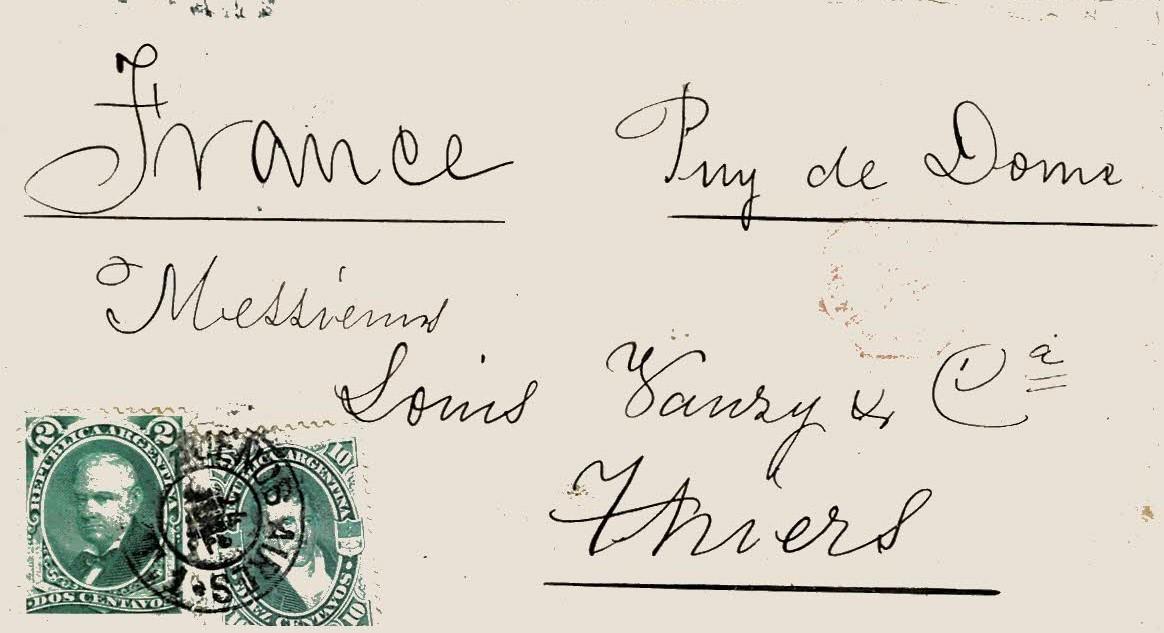 France Puy de Dome
Messieurs
Louis Vauzy & Cª
Thiers
2 2
REPUBLICA ARGENTINA
DOS CENTAVOS
10
ARGENTINA
CENTAVOS
10
BUENOS AIRES